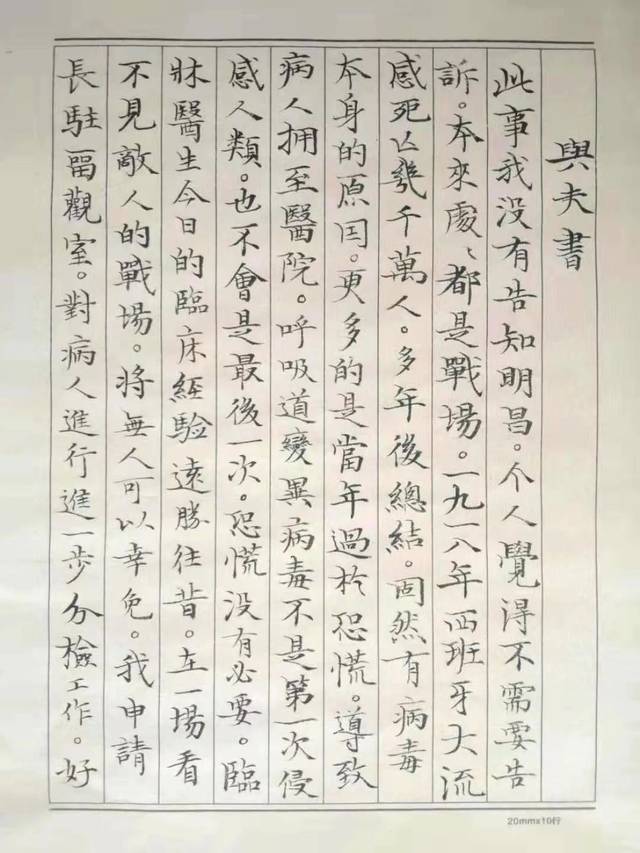 與夫書
此事我没有告知明昌。个人覺得不需要告
訴。本來處〻都是戰場。一九一八年西班牙大流
感死亡幾千萬人。多年後總結。固然有病毒
本身的原因。更多的是當年過於恐慌。導致
病人拥至醫院。呼吸道變異病毒不是第一次侵
感人類。也不會是最後一次。恐慌没有必要。臨
牀醫生今日的臨床經驗遠勝往昔。在一場看
不見敵人的戰場。將無人可以幸免。我申請
長駐留觀室。對病人進行進一步分檢工作。好
20mmx10行